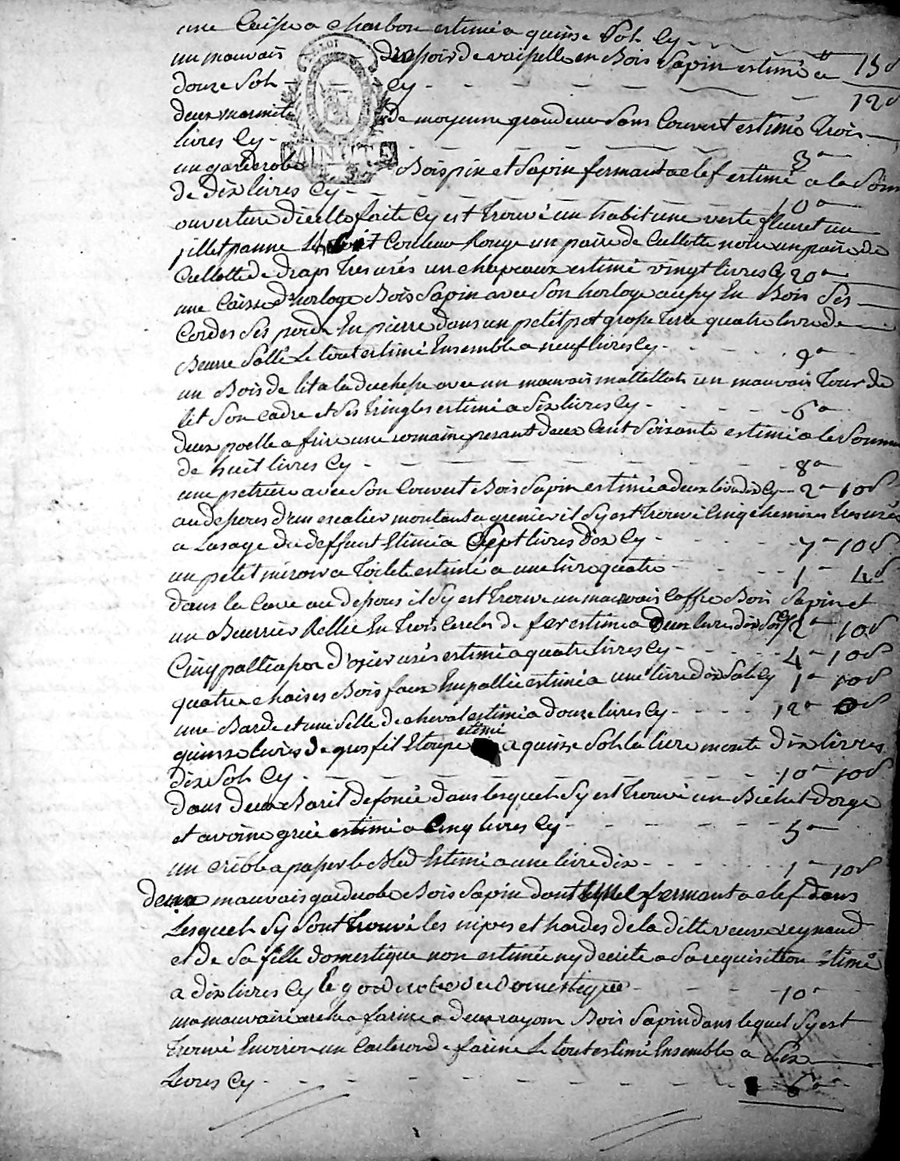 une Caisse a charbon estimé a quinse Sols Cy
un mauvais dressoir de vaiselle en Bois Sapin estimé a 15 s
douze Sols Cy 12 s
LA LOI
deux marmite de moyenne grandeur Sans Couvert estimé Trois
livres Cy 3
MINUTE
un garderobe Bois pin et Sapin fermant a clef estimé a la Som
de Dix livres Cy 10
ouverture d'icelle faite Cy est Trouvé un habit une veste un
gillet panne Couleur Rouge un paire de Cullotte noire un paire de
Cullotte de drap Tres usés un chapeaux estimé vingt livres Cy 20
une Caisse d'horloge Bois Sapin avec Son horloge aussy En Bois Ses
Cordes Ses poids En pierre dans un petit pot grosse Terre quatre livre de
Beurre Sallé Le tout estimé Ensemble a neuf livres Cy 9
un Bois de lit a la duchesse avec un mauvais mattellats un mauvais Tour de
lit Son Cadre et Ses Tringles estimé a Six livres Cy 6
deux poelle a frire une romaine pesant deux Cent Soixante estimé a la Somme
de huit livres Cy 8
une petriere avec Son Couvert Bois Sapin estimé a deux livre dix Cy 2 10 s
au dessous d'un escalier montant a grenier il Sy est Trouvé Cinq chemises tres usés
a Lusage du deffunt Estimé a Sept livres dix Cy 7 10 s
un petit miroir a Toilete estimé a une livre quatre 1 4 s
dans la Cave au dessous il Sy est Trouvé un mauvais Coffre Bois Sapin et
un Beurrier Rellié En Trois Cercles de fer estimé a Deux livre dix Sols Cy 2 10 s
Cinq palliasson d'ozier usés estimé a quatre livres Cy 4 10 s
quatre chaises Bois faux Empallié estimé a une livre dix Sols Cy 1 10 s
une Barde et une Selle de cheval estimé a douze livres Cy 12 0 s
estimé
quinse livres de gros fil Etoupe a quinse Sols la livre monte Dix livres
dix Sols Cy 10 10 s
dans deux Baril defoncé dans lesquels Sy est Trouvé un Bichet d'orge
et avoine estimé a Cinq livres Cy 5
un crible a passer le Bled Estimé a une livre dix 1 10 s
deux mauvais garderobe Bois Sapin dont fermant a clef dans
Lesquels Sy Sont Trouvé les nipes et hardes de la ditte veuve reynaud
et de Sa fille domestique non estimée ny decrite a Sa requisition Estimé
a dix livres Cy le garderobe de domestique 10
un mauvaise arche a farine a deux rayon Bois Sapin dans lequel Sy est
Trouvé Environ un Carteron de farine Le tout estimé Ensemble a Six
Livres Cy 6